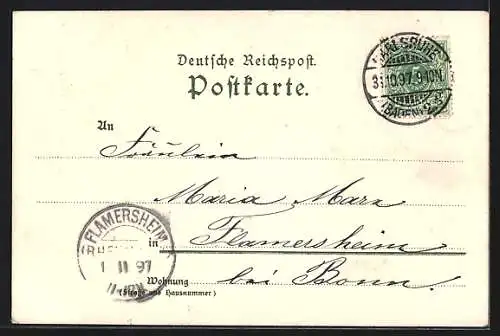 Deutsche Reichspost.
Postkarte.
KARLSRUHE
31.10.97.9-10N.
(BADEN)
An
Fräulein
Maria Marx
in Flamersheim
bei Bonn.
Wohnung
(Straße und Hausnummer)
FLAMERSHEIM
1 11 97